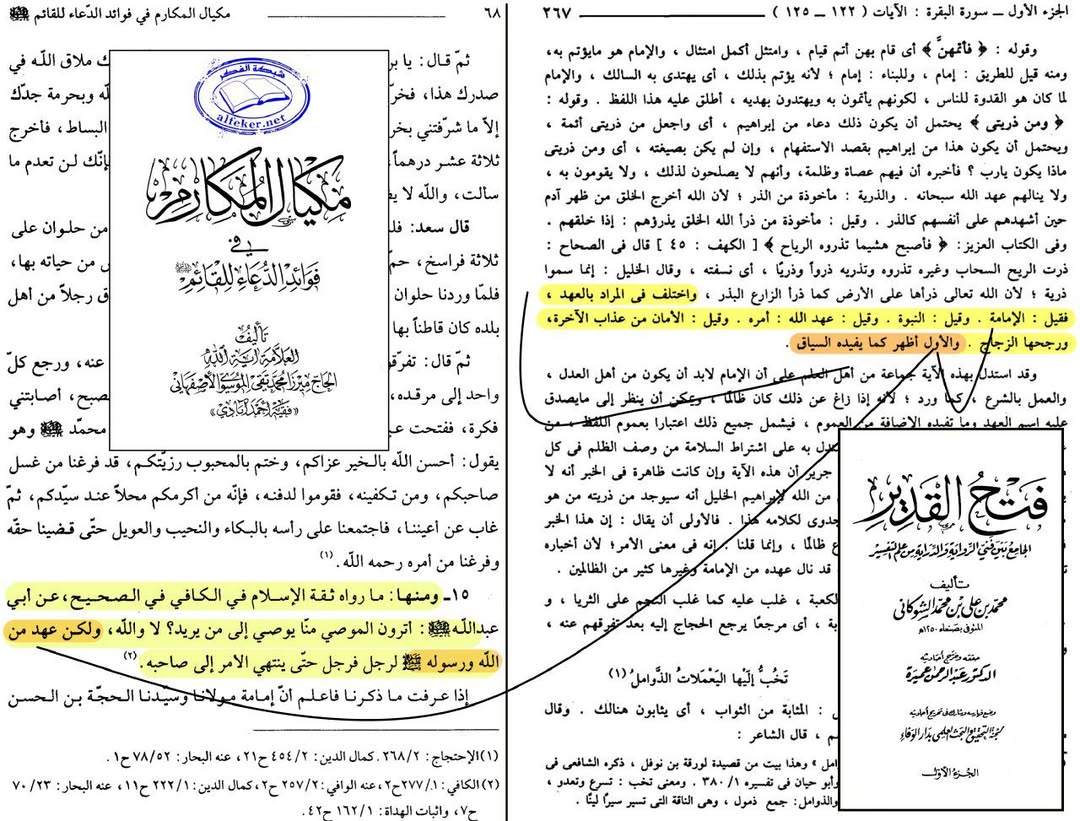 الجزء الأول ــ سورة البقرة : الآيات ( ١٢٢ ــ ١٢٥ ) ٢٦٧
وقوله : ﴿ فأتمهنَّ ﴾ أى قام بهن أتم قيام ، وامتثل أكمل امتثال ، والإمام هو مايؤتم به،
ومنه قيل للطريق : إمام ، وللبناء : إمام ؛ لأنه يؤتم بذلك ، أى يهتدى به السالك ، والإمام
لما كان هو القدوة للناس ، لكونهم يأتمون به ويهتدون بهديه ، أطلق عليه هذا اللفظ . وقوله :
﴿ ومن ذريتى ﴾ يحتمل أن يكون ذلك دعاء من إبراهيم ، أى واجعل من ذريتى أئمة ،
ويحتمل أن يكون هذا من إبراهيم بقصد الاستفهام ، وإن لم يكن بصيغته ، أى ومن ذريتى
ماذا يكون يارب ؟ فأخبره أن فيهم عصاة وظلمة، وأنهم لا يصلحون لذلك ، ولا يقومون به ،
ولا ينالهم عهد الله سبحانه . والذرية : مأخوذة من الذر ؛ لأن الله أخرج الخلق من ظهر آدم
حين أشهدهم على أنفسهم كالذر . وقيل : مأخوذة من ذرأ الله الخلق يذرؤهم : إذا خلقهم .
وفى الكتاب العزيز: ﴿ فأصبح هشيما تذروه الرياح ﴾ [ الكهف : ٤٥ ] قال فى الصحاح :
ذرت الريح السحاب وغيره تذروه وتذريه ذرواً وذريًا ، أى نسفته ، وقال الخليل : إنما سموا
ذرية ؛ لأن الله تعالى ذرأها على الأرض كما ذرأ الزارع البذر ، واختلف فى المراد بالعهد ،
فقيل : الإمامة . وقيل : النبوة . وقيل : عهد الله : أمره . وقيل : الأمان من عذاب الآخرة،
ورجحها الزجاج . والأول أظهر كما يفيده السياق .
وقد استدل بهذه الآية جماعة من أهل العلم على أن الإمام لابد أن يكون من أهل العدل ،
والعمل بالشرع ، كما ورد ؛ لأنه إذا زاغ عن ذلك كان ظالمًا ، ويمكن أن ينظر إلى مايصدق
عليه اسم العهد وما تفيده الإضافة من العموم ، فيشمل جميع ذلك اعتبارا بعموم اللفظ ، من
دل به على اشتراط السلامة من وصف الظلم فى كل
جرير أن هذه الآية وإن كانت ظاهرة فى الخبر أنه لا
من الله لإبراهيم الخليل أنه سيوجد من ذريته من هو
جدوى لكلامه هذا . فالأولى أن يقال : إن هذا الخبر
ظالمًا ، وإنما قلنا . إنه فى معنى الأمر؛ لأن أخباره
قد نال عهده من الإمامة وغيرها كثير من الظالمين .
لكعبة ، غلب عليه كما غلب النجم على الثريا ، و
، أى مرجعًا يرجع الحجاج إليه بعد تفرقهم عنه ،
تَخُبُّ إلَيْها اليَعْمَلاتُ الذَّوامِلُ (١)
: المثابة من الثواب ، أى يثابون هنالك . وقال
م ، قال الشاعر :
امل » وهذا بيت من قصيدة لورقة بن نوفل ، ذكره الشافعى فى
وأبو حيان فى تفسيره ١/ ٣٨٠ . ومعنى تخب : تسرع وتعدو ،
والذوامل: جمع ذمول ، وهى الناقة التى تسير سيرا لينًا .
فتح القدير
الجامع بين فني الرواية والدراية من علم التفسير
تأليف
محمد بن علي بن محمد الشوكاني
المتوفى بصنعاء ١٢٥٠هـ
حققه وخرج أحاديثه
الدكتور عبد الرحمن عميرة
وضع فهارسه وشارك في تخريج أحاديثه
لجنة التحقيق والبحث العلمي بدار الوفاء
الجزء الأول
٦٨ مكيال المكارم في فوائد الدّعاء للقائم ﷺ
ثمّ قـال: يا بر
ك ملاق اللّـه في
صدرك هذا، فخرّ
لّه وبحرمة جدّك
إلاّ ما شرّفتني بخر
البساط، فأخرج
ثلاثة عشـر درهمـاً
إنّك لـن تعدم ما
سألت، واللّه لا يض
قال سعد: فلم
من حلـوان على
ثلاثة فراسخ، حم
س من حياته بها،
فلمّا وردنا حلوان
ق رجلاً من أهل
بلده كان قاطناً بها
ثمّ قال: تفرّقو
عنه، ورجع كلّ
واحد إلى مرقـده،
لصبح، أصـابتني
فكرة، ففتحت عـ
محمدّ ﷺ وهو
يقول: أحسن اللّه بالـخير عزاكم، وختم بالمحبوب رزيّتكـم، قد فرغنا من غسل
صاحبكم، ومن تـكفينه، فقوموا لدفنـه، فإنّه من أكرمكم محلاً عنـد سيّدكـم، ثـمّ
غاب عن أعيننـا، فاجتمعنا على رأسه بالـبكاء والنحيب والعويل حتّى قـضينا حقّه
وفرغنا من أمره رحمه اللّه.(١)
١٥ـ ومنـها: مـا رواه ثـقـة الإسـلام في الـكافي في الـصحيـح، عـن أبي
عبداللّـه ﷺ : أترون الموصي منّا يوصي إلى من يريد؟ لا واللّه، ولكـن عهـد من
اللّه ورسوله ﷺ لرجل فرجل حتّى ينتهي الامر إلى صاحبه.(٢)
إذا عـرفت مـا ذكـرنا فـاعلـم أنّ إمـامة مـولانا وسيّـدنـا الـحجّـة بن الـحسـن
(١) الإحتجاج: ٢٦٨/٢. كمال الدين: ٤٥٤/٢ ح٢١، عنه البحار: ٧٨/٥٢ ح١.
(٢) الكافي: ٢٧٧/١ ح٢، عنه الوافي: ٢٥٧/٢ ح٢، كمال الدين: ٢٢٢/١ ح١١، عنه البحار: ٧٠/٢٣
ح٧، واثبات الهداة: ١٦٢/١ ح٤٢.
شبكة الفكر
alfeker.net
مكيال المكارم
في
فوائد الدعاء للقائم
تأليف
العلامة آية الله
الحاج ميرزا محمد تقي الموسوي الأصفهاني
«فقيه أحمدآبادي»